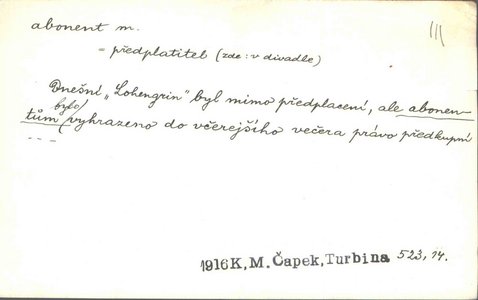 abonent m.
III
= předplatitel (zde: v divadle)
Dnešní „Lohengrin" byl mimo předplacení, ale abonen-
bylo
tům vyhrazeno do včerejšího večera právo předkupní
---
1916K, M. Čapek, Turbina 523, 14.